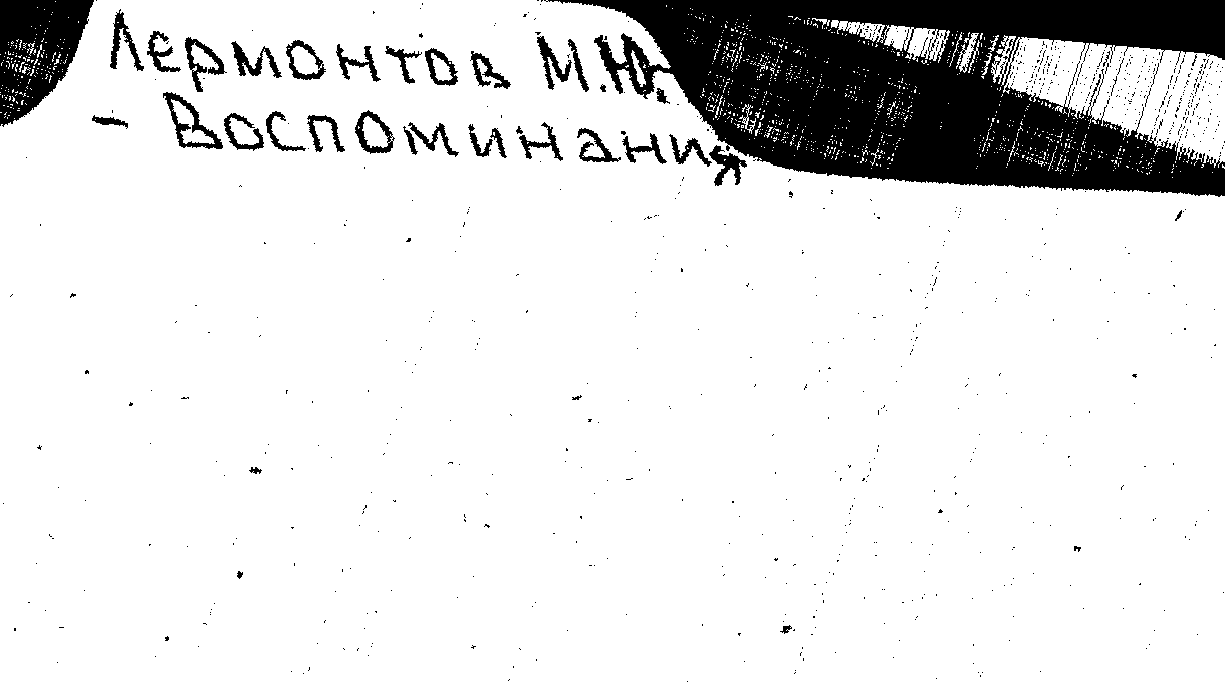 Лермонтов М.Ю.
- Воспоминания